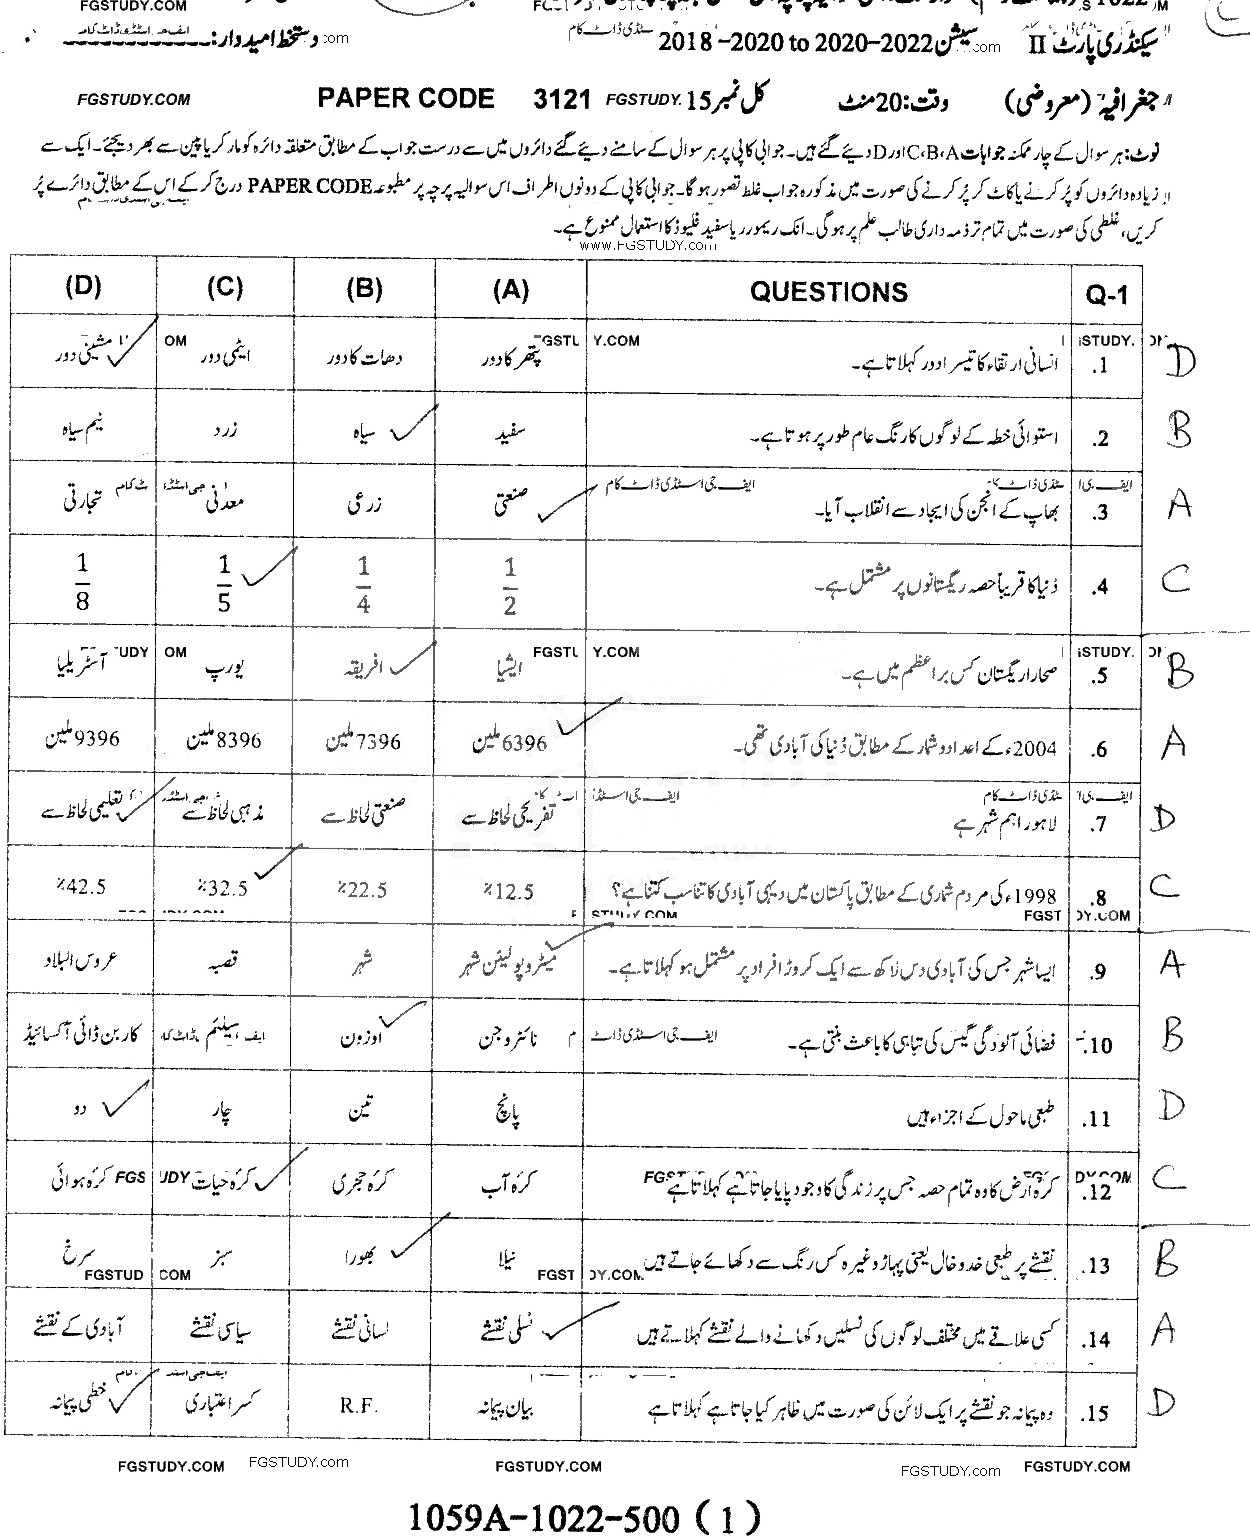 FGSTUDY.COM
دستخط امیدوار: سیشن 2018-2020 to 2020-2022 سیکنڈری پارٹ II
جغرافیہ (معروضی) وقت: 20 منٹ کل نمبر 15 FGSTUDY. PAPER CODE 3121 FGSTUDY.COM
نوٹ: ہر سوال کے چار ممکنہ جوابات C،B،A اور D دیئے گئے ہیں۔ جوابی کاپی پر ہر سوال کے سامنے دیئے گئے دائروں میں سے درست جواب کے مطابق متعلقہ دائرہ کو مارکر یا پین سے بھر دیجئے۔ ایک سے
زیادہ دائروں کو پُر کرنے یا کاٹ کر پُر کرنے کی صورت میں مذکورہ جواب غلط تصور ہو گا۔ جوابی کاپی کے دونوں اطراف اس سوالیہ پرچہ پر مطبوعہ PAPER CODE درج کر کے اس کے مطابق دائرے پُر
کریں، غلطی کی صورت میں تمام تر ذمہ داری طالب علم پر ہو گی۔ انک ریموور یا سفید فلیوڈ کا استعمال ممنوع ہے۔
www.FGSTUDY.com
Q-1 QUESTIONS (A) (B) (C) (D)
1. انسانی ارتقاء کا تیسرا دور کہلاتا ہے۔ پتھر کا دور دھات کا دور ایٹمی دور مشینی دور D
2. استوائی خطہ کے لوگوں کا رنگ عام طور پر ہوتا ہے۔ سفید سیاہ زرد نیم سیاہ B
3. بھاپ کے انجن کی ایجاد سے انقلاب آیا۔ صنعتی زرعی معدنی تجارتی A
4. دُنیا کا قریباً حصہ ریگستانوں پر مشتمل ہے۔ 1/2 1/4 1/5 1/8 C
5. صحارا ریگستان کس براعظم میں ہے۔ ایشیا افریقہ یورپ آسٹریلیا B
6. 2004ء کے اعداد و شمار کے مطابق دُنیا کی آبادی تھی۔ 6396 ملین 7396 ملین 8396 ملین 9396 ملین A
7. لاہور اہم شہر ہے تفریحی لحاظ سے صنعتی لحاظ سے مذہبی لحاظ سے تعلیمی لحاظ سے D
8. 1998ء کی مردم شماری کے مطابق پاکستان میں دیہی آبادی کا تناسب کتنا ہے؟ 12.5% 22.5% 32.5% 42.5% C
9. ایسا شہر جس کی آبادی دس لاکھ سے ایک کروڑ افراد پر مشتمل ہو کہلاتا ہے۔ میٹروپولیٹن شہر شہر قصبہ عروس البلاد A
10. فضائی آلودگی گیس کی تباہی کا باعث بنتی ہے۔ نائٹروجن اوزون ہیلیئم کاربن ڈائی آکسائیڈ B
11. طبعی ماحول کے اجزاء ہیں پانچ تین چار دو D
12. کرہ ارض کا وہ تمام حصہ جس پر زندگی کا وجود پایا جاتا ہے کہلاتا ہے کرہ آب کرہ حجری کرہ حیات کرہ ہوائی C
13. نقشے پر طبعی خدوخال یعنی پہاڑ وغیرہ کس رنگ سے دکھائے جاتے ہیں نیلا بھورا سبز سرخ B
14. کسی علاقے میں مختلف لوگوں کی نسلیں دکھانے والے نقشے کہلاتے ہیں نسلی نقشے لسانی نقشے سیاسی نقشے آبادی کے نقشے A
15. وہ پیمانہ جو نقشے پر ایک لائن کی صورت میں ظاہر کیا جاتا ہے کہلاتا ہے بیان پیمانہ R.F. کسر اعتباری خطی پیمانہ D
FGSTUDY.COM FGSTUDY.com FGSTUDY.COM FGSTUDY.com FGSTUDY.COM
1059A-1022-500 (1)